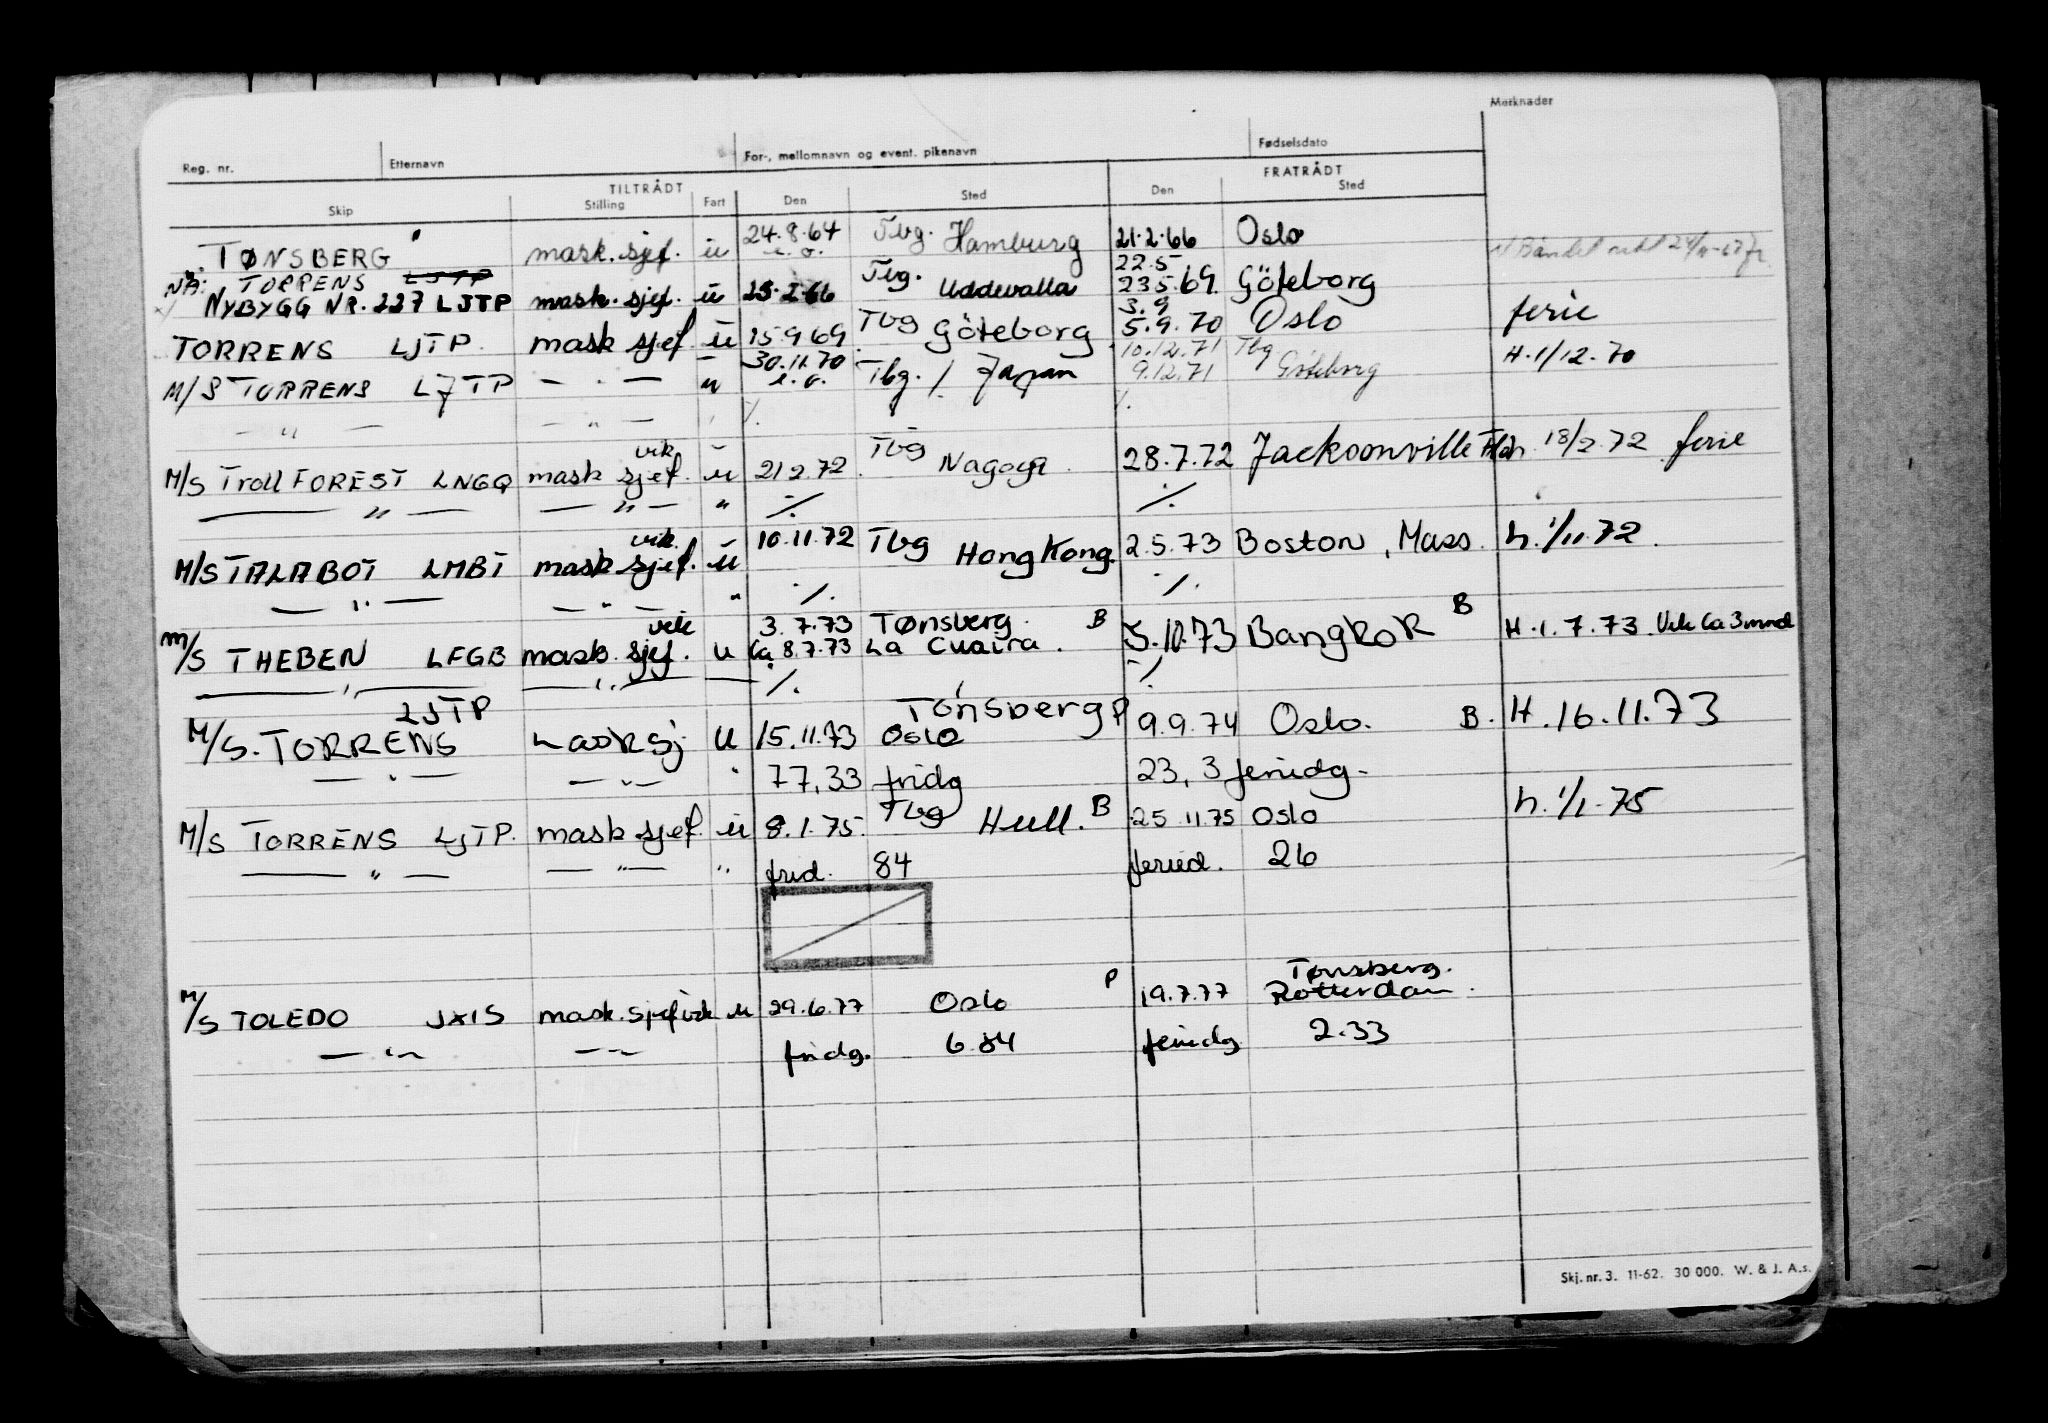 Merknader
Reg. nr. Etternavn For-, mellomnavn og event. pikenavn Fødselsdato
TILTRÅDT FRATRÅDT
Skip Stilling Fart Den Sted Den Sted
TØNSBERG mask. sjef. u 24.8.64 Tbg. Hamburg 21.2.66 Oslo
e.o.
NÅ: TORRENS LJTP 22.5
NYBYGG NR. 227 LJTP mask. sjef. u 25.2.66 Tbg. Uddevalla 23.5.69 Göteborg
TORRENS LJTP. mask sjef u 15.9.69 Tbg Göteborg 3.9 5.9.70 Oslo ferie
M/S TORRENS LJTP — " — u 30.11.70 e.o. Tbg. / Japan 10.12.71 9.12.71 Tbg Göteborg H. 1/12.70
— " — — " — " ./. ./.
M/S Troll FOREST LNGQ mask sjef. vik u 21.2.72. Tbg Nagoya 28.7.72 Jacksonville Fla h. 18/2.72 ferie
— " — — " — " ./. ./.
M/S TALABOT LMBT mask sjef. vik. u 10.11.72 Tbg Hong Kong. 2.5.73 Boston, Mass. h. 1/11.72.
— " — — " — " ./. ./.
M/S THEBEN LFGB mask. sjef. vik u 3.7.73 Tønsberg. B 5.10.73 Bangkok B H. 1.7.73. Vik ca 3 mnd
Ca 8.7.73 La Cuaira.
— " — — " — — ./. ./.
M/S. TORRENS LJTP Masksj u 15.11.73 Tønsberg P 9.9.74 Oslo. B. H. 16.11.73
Oslo
— " — — " — " 77,33 fridg 23,3 feriedg.
M/S TORRENS LJTP. mask sjef. u 8.1.75. Tbg Hull. B 25.11.75 Oslo h. 1/1.75
— " — — " — " frid. 84 feried. 26
M/S TOLEDO JXIS mask. sjef vik u 29.6.77 Oslo P 19.7.77 Tønsberg.
Rotterdam.
— " — — " — fridg. 6.84 feriedg 2.33
Skj. nr. 3. 11-62. 30 000. W. & J. A.s.